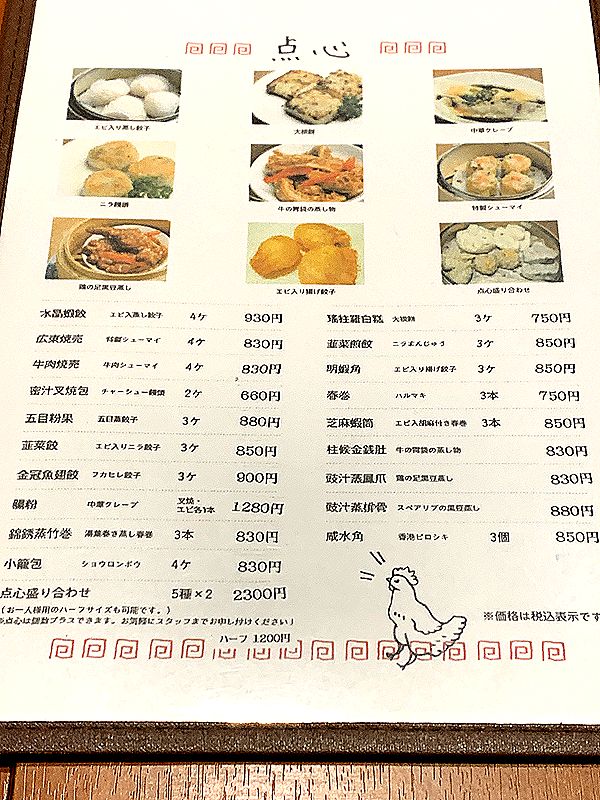 点心
エビ入り蒸し餃子
大根餅
中華クレープ
ニラ饅頭
牛の胃袋の蒸し物
特製シューマイ
鶏の足黒豆蒸し
エビ入り揚げ餃子
点心盛り合わせ
水晶蝦餃 エビ入蒸し餃子 4ケ 930円
広東焼売 特製シューマイ 4ケ 830円
牛肉焼売 牛肉シューマイ 4ケ 830円
蜜汁叉焼包 チャーシュー饅頭 2ケ 660円
五目粉果 五目蒸餃子 3ケ 880円
韮菜餃 エビ入りニラ餃子 3ケ 850円
金冠魚翅餃 フカヒレ餃子 3ケ 900円
腸粉 中華クレープ 叉焼・エビ各1本 1280円
錦銹蒸竹巻 湯葉巻き蒸し春巻 3本 830円
小籠包 ショウロンポウ 4ケ 830円
点心盛り合わせ 5種×2 2300円
(お一人様用のハーフサイズも可能です。)
※点心は個数プラスできます。お気軽にスタッフまでお申し付けください
ハーフ 1200円
瑤柱羅白糕 大根餅 3ケ 750円
韮菜煎餃 ニラまんじゅう 3ケ 850円
明蝦角 エビ入り揚げ餃子 3ケ 850円
春巻 ハルマキ 3本 750円
芝麻蝦筒 エビ入胡麻付き春巻 3本 850円
柱候金銭肚 牛の胃袋の蒸し物 830円
豉汁蒸鳳爪 鶏の足黒豆蒸し 830円
豉汁蒸排骨 スペアリブの黒豆蒸し 880円
咸水角 香港ピロシキ 3個 850円
※価格は税込表示です